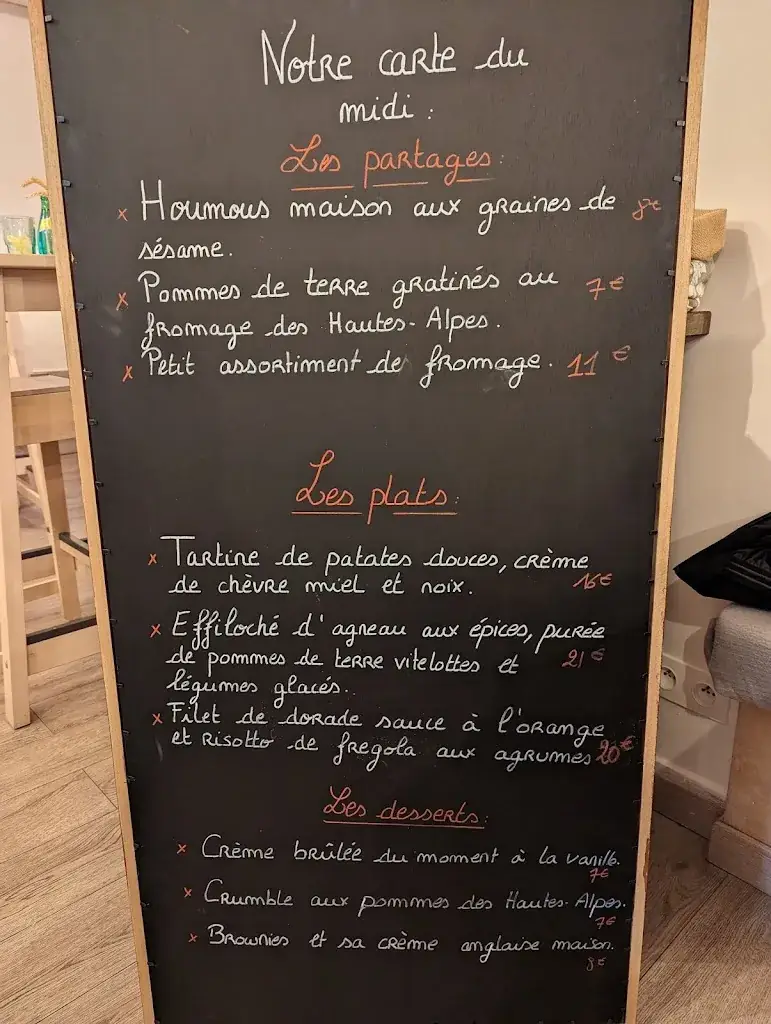 Notre carte du
midi :
Les partages :
x Houmous maison aux graines de 8€
sésame.
x Pommes de terre gratinés au 7€
fromage des Hautes-Alpes.
x Petit assortiment de fromage. 11€
Les plats :
x Tartine de patates douces, crème
de chèvre miel et noix. 16€
x Effiloché d'agneau aux épices, purée
de pommes de terre vitelottes et 21€
légumes glacés.
x Filet de dorade sauce à l'orange
et risotto de fregola aux agrumes 20€
Les desserts :
x Crème brûlée du moment à la vanille.
7€
x Crumble aux pommes des Hautes-Alpes.
7€
x Brownies et sa crème anglaise maison.
8€